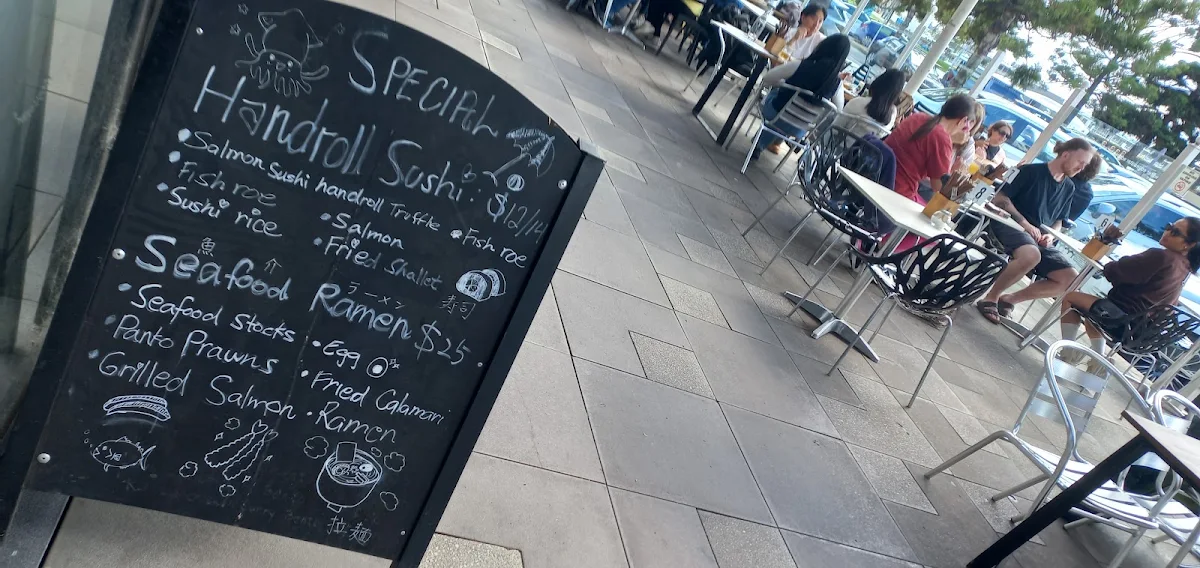 SPECIAL
Handroll Sushi: $12/14
• Salmon Sushi handroll Truffle • Fish roe
• Fish roe
• Salmon
• Sushi rice
• Fried Shallet
寿司
魚 介
ラーメン
Seafood Ramen $25
• Seafood Stocks
• Egg
• Panko Prawns
• Fried Calamari
• Grilled Salmon
• Ramen
拉麺
8